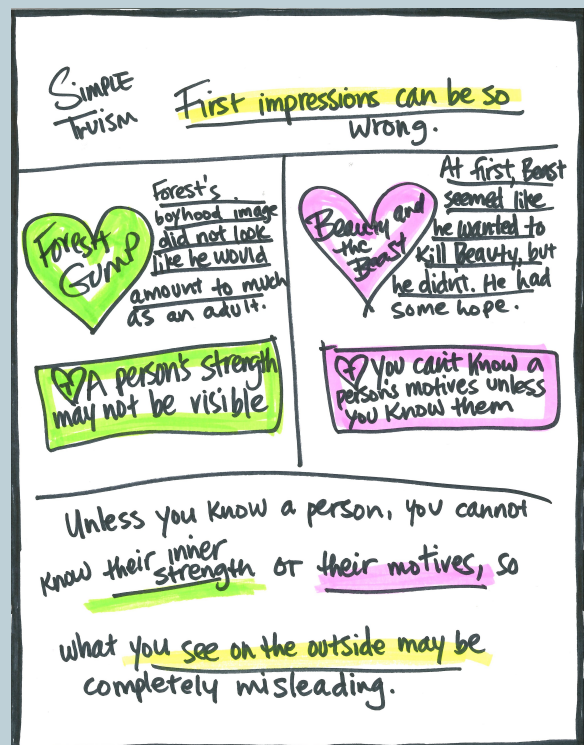 SIMPLE
Truism
First impressions can be so
wrong.
Forest
Gump
Forest's
boyhood image
did not look
like he would
amount to much
as an adult.
A person's strength
may not be visible
Beauty and
the
Beast
At first, Beast
seemed like
he wanted to
Kill Beauty, but
he didn't. He had
some hope.
You can't know a
person's motives unless
you know them
Unless you know a person, you cannot
know their inner
strength or their motives, so
what you see on the outside may be
completely misleading.